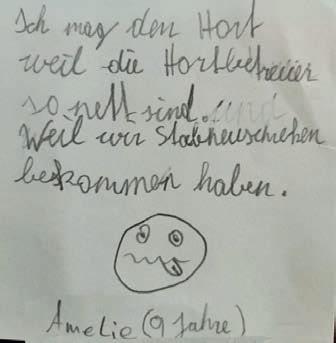 Ich mag den Hort
weil die Hortbetreuer
so nett sind. und
Weil wir Stabheuschreken
bekommen haben.
Amelie (9 Jahre)